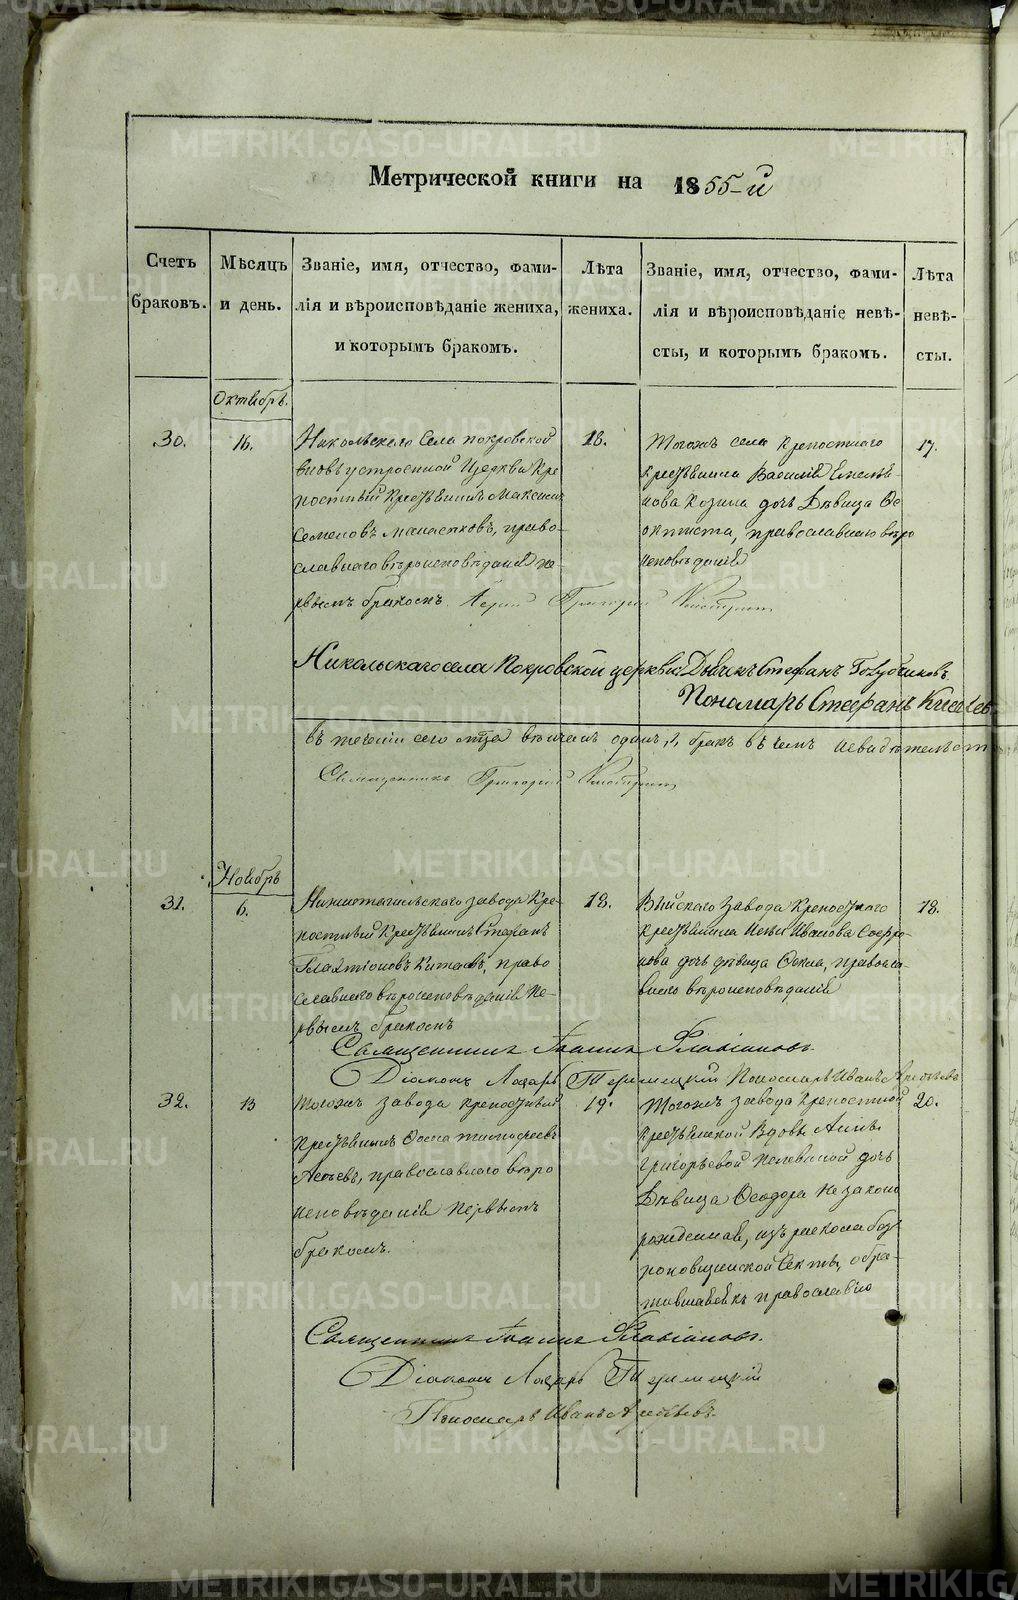 METRIKI.GASO-URAL.RU
Метрической книги на 1855-й
Счетъ браковъ.
Мѣсяцъ и день.
Званіе, имя, отчество, фами-
лія и вѣроисповѣданіе жениха,
и которымъ бракомъ.
Лѣта
жениха.
Званіе, имя, отчество, фами-
лія и вѣроисповѣданіе невѣ-
сты, и которымъ бракомъ.
Лѣта
невѣ-
сты.
Октябрь.
30.
16.
Никольскаго села покровской
вновь устроенной Церкви Кре
постный Крестьянинъ Максимъ
Семеновъ, право-
славнаго вѣроисповѣданія пе-
рвымъ бракомъ. Іерей Григорій
18.
Тогожъ села крепостнаго
Крестьянина Василія Емелья-
нова Козина дочь Дѣвица Ѳе
октиста, православнаго вѣро
исповѣданія
17.
Никольскаго села Покровской церкви: Дьячекъ Стефанъ Голубчиковъ.
Пономарь Стефанъ Киселев
въ течении сего вѣнчанъ одинъ, 1, бракъ въ чемъ и свидѣтельст
Священникъ Григорій
Ноябрь
31.
6.
Нижнетагильскаго завода Кре-
постный Крестьянинъ Стефанъ
Галактіоновъ Китаевъ, право
славнаго вѣроисповѣданія пе-
рвымъ бракомъ
18.
Выйскаго завода Крепостнаго
Крестьянина Ивана Софро-
нова дочь дѣвица Ѳекла, правосла-
внаго вѣроисповѣданія
18.
Священникъ Іоаннъ Флавіановъ.
Діаконъ Лазарь Пономарь Иванъ Арефьевъ
32.
13
Тогожъ завода крепостный
Крестьянинъ Ѳома Тимофеевъ
православнаго вѣро
исповѣданія первымъ
бракомъ.
19.
Тогожъ завода Крепостной
Крестьянской Вдовы Анны
Григорьевой дочь
Дѣвица Ѳеодора незаконно
рожденная, изъ раскола без
поповщинской Секты, обра-
тившаяся къ православію
20.
Священникъ Іоаннъ Флавіановъ.
Діаконъ Лазарь
Пономарь Иванъ Арефьевъ.